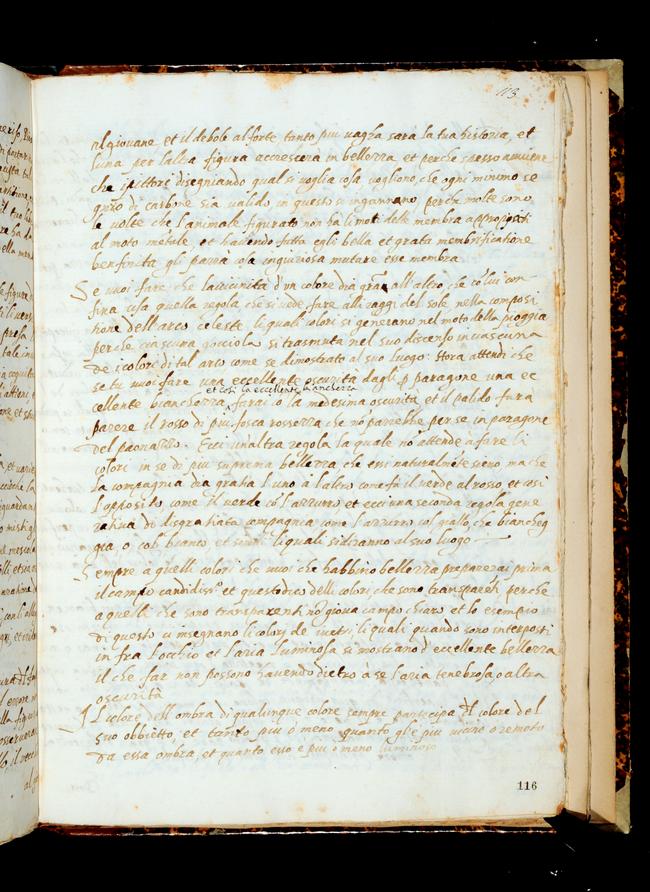 113
il giovane, et il debole al forte tanto piu vagha sara la tua historia, et
l'una per l'altra figura accrescera in bellezza, et perche spesso aviene
che i pittori disegniando qual si voglia cosa vogliono, che ogni minimo se
gnuzo di carbone sia valido, in questo s'ingannano perche molte sono
le volte che l'animale figurato non ha li moti delle membra appropriati
al moto metale, et havendo fatta egli bella et grata membrificatione
ben finita gli parrà cosa ingiuriosa mutare esse membra
Se vuoi fare che la vicinità d'un colore dia gratia all'altro, che co lui con
fina usa quella regola che si vede fare alli raggi del sole nella composi
tione dell'arco celeste li quali colori si generano nel moto della pioggia
perche ciascuna gocciola si trasmuta nel suo discenso in ciascuna
de i colori di tal arco come se dimostrato al suo luogo. Hora attendi che
se tu vuoi fare una eccellente oscurità dagli p paragone una ec
et così la eccellente bianchezza
cellente bianchezza farai co la medesima oscurità et il palido fara
parere il rosso di piu fosca rossezza che no parebbe per se in paragone
del paonazzo. Ecci un'altra regola la quale no attende a fare li
colori in se di piu suprema bellezza che essi naturalmete sieno ma che
la compagnia dia gratia l'uno à l'altro come fà il verde al rosso et così
l'opposito come il verde co l'azzurro et ecci una seconda regola gene
rativa di disgratiata compagnia come l'azzurro col giallo, che biancheg
gia o col bianco et simili li quali si diranno al suo luogo
Sempre a quelli colori che vuoi che habbino bellezza preparerai prima
il campo candidissº et questo dico delli colori, che sono transpareti perche
a quelli che sono transparenti no giova campo chiaro et lo esempio
di questo ci insegnano li colori de i vetri, li quali quando sono interposti
in fra l'occhio et l'aria luminosa si mostrano d'eccellente bellezza
il che far non possono havendo dietro à se l'aria tenebrosa o altra
oscurità
Il colore dell'ombra di qualunque colore sempre partecipa del colore del
suo obbietto, et tanto piu ò meno quanto gl'e piu vicino o remoto
da essa ombra, et quanto esso è piu o meno luminoso
116